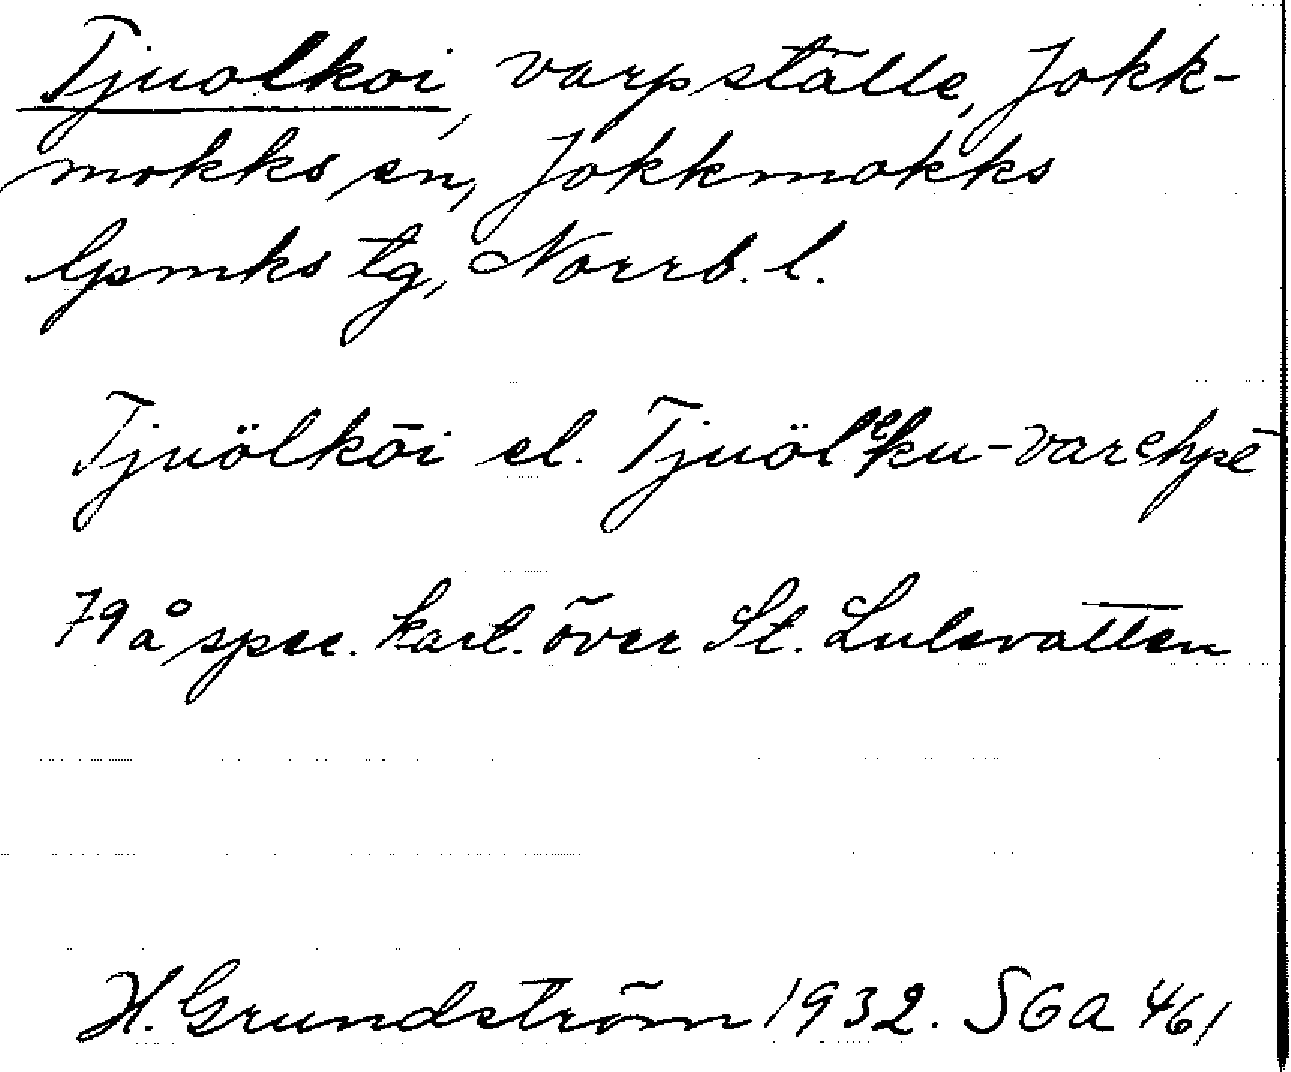 Tjuolkoi, varpställe, Jokk-
mokks sn, Jokkmokks
lpmks tg, Norrb. l.
Tjuölkōi el. Tjuölᵉku-varehpē
79 å spec. kart. över St. Lulevatten
H. Grundström 1932. SGA 461